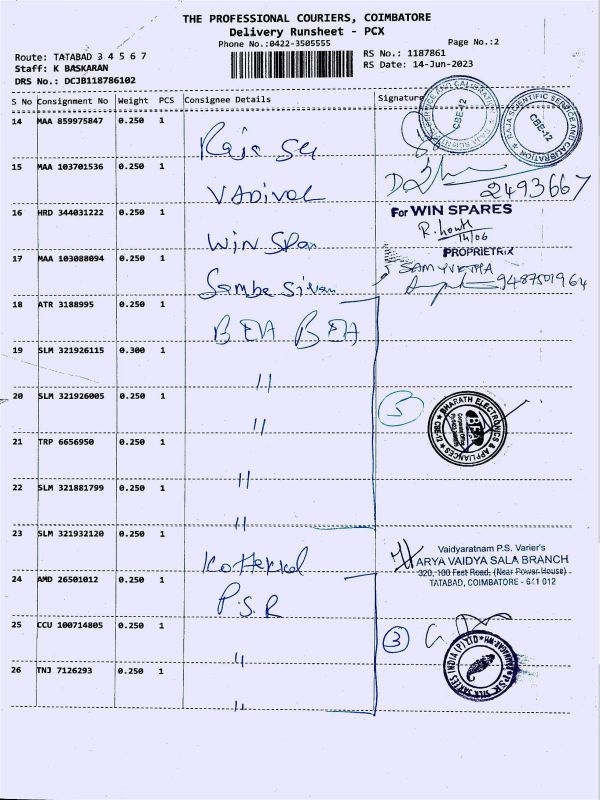 THE PROFESSIONAL COURIERS, COIMBATORE
Delivery Runsheet - PCX
Phone No.:0422-3505555
Page No.:2
Route: TATABAD 3 4 5 6 7
Staff: K BASKARAN
DRS No.: DCJB118786102
RS No.: 1187861
RS Date: 14-Jun-2023
S No Consignment No Weight PCS Consignee Details Signature
14 MAA 859975847 0.250 1
Raja
RAJA SCIENTIFIC SERVICE AND CALIBRATION
CBE-12
RAJA SCIENTIFIC SERVICE AND CALIBRATION
CBE-12
15 MAA 103701536 0.250 1
VADIVAL
2493667
16 HRD 344031222 0.250 1
WIN SPar
For WIN SPARES
14/06
PROPRIETRIX
17 MAA 103088094 0.250 1
Sambasivan
SAMYVETHA
9487501964
18 ATR 3188995 0.250 1
BEA BEA
19 SLM 321926115 0.300 1
"
20 SLM 321926005 0.250 1
"
5
BHARATH ELECTRONICS & APPLIANCES
CBE-12
21 TRP 6656950 0.250 1
"
22 SLM 321881799 0.250 1
"
23 SLM 321932120 0.250 1
Kottakkal
Vaidyaratnam P.S. Varier's
ARYA VAIDYA SALA BRANCH
320, 100 Feet Road, (Near Power House)
TATABAD, COIMBATORE - 641 012
24 AMD 26501012 0.250 1
P.S.R
25 CCU 100714805 0.250 1
"
3
26 TNJ 7126293 0.250 1
"